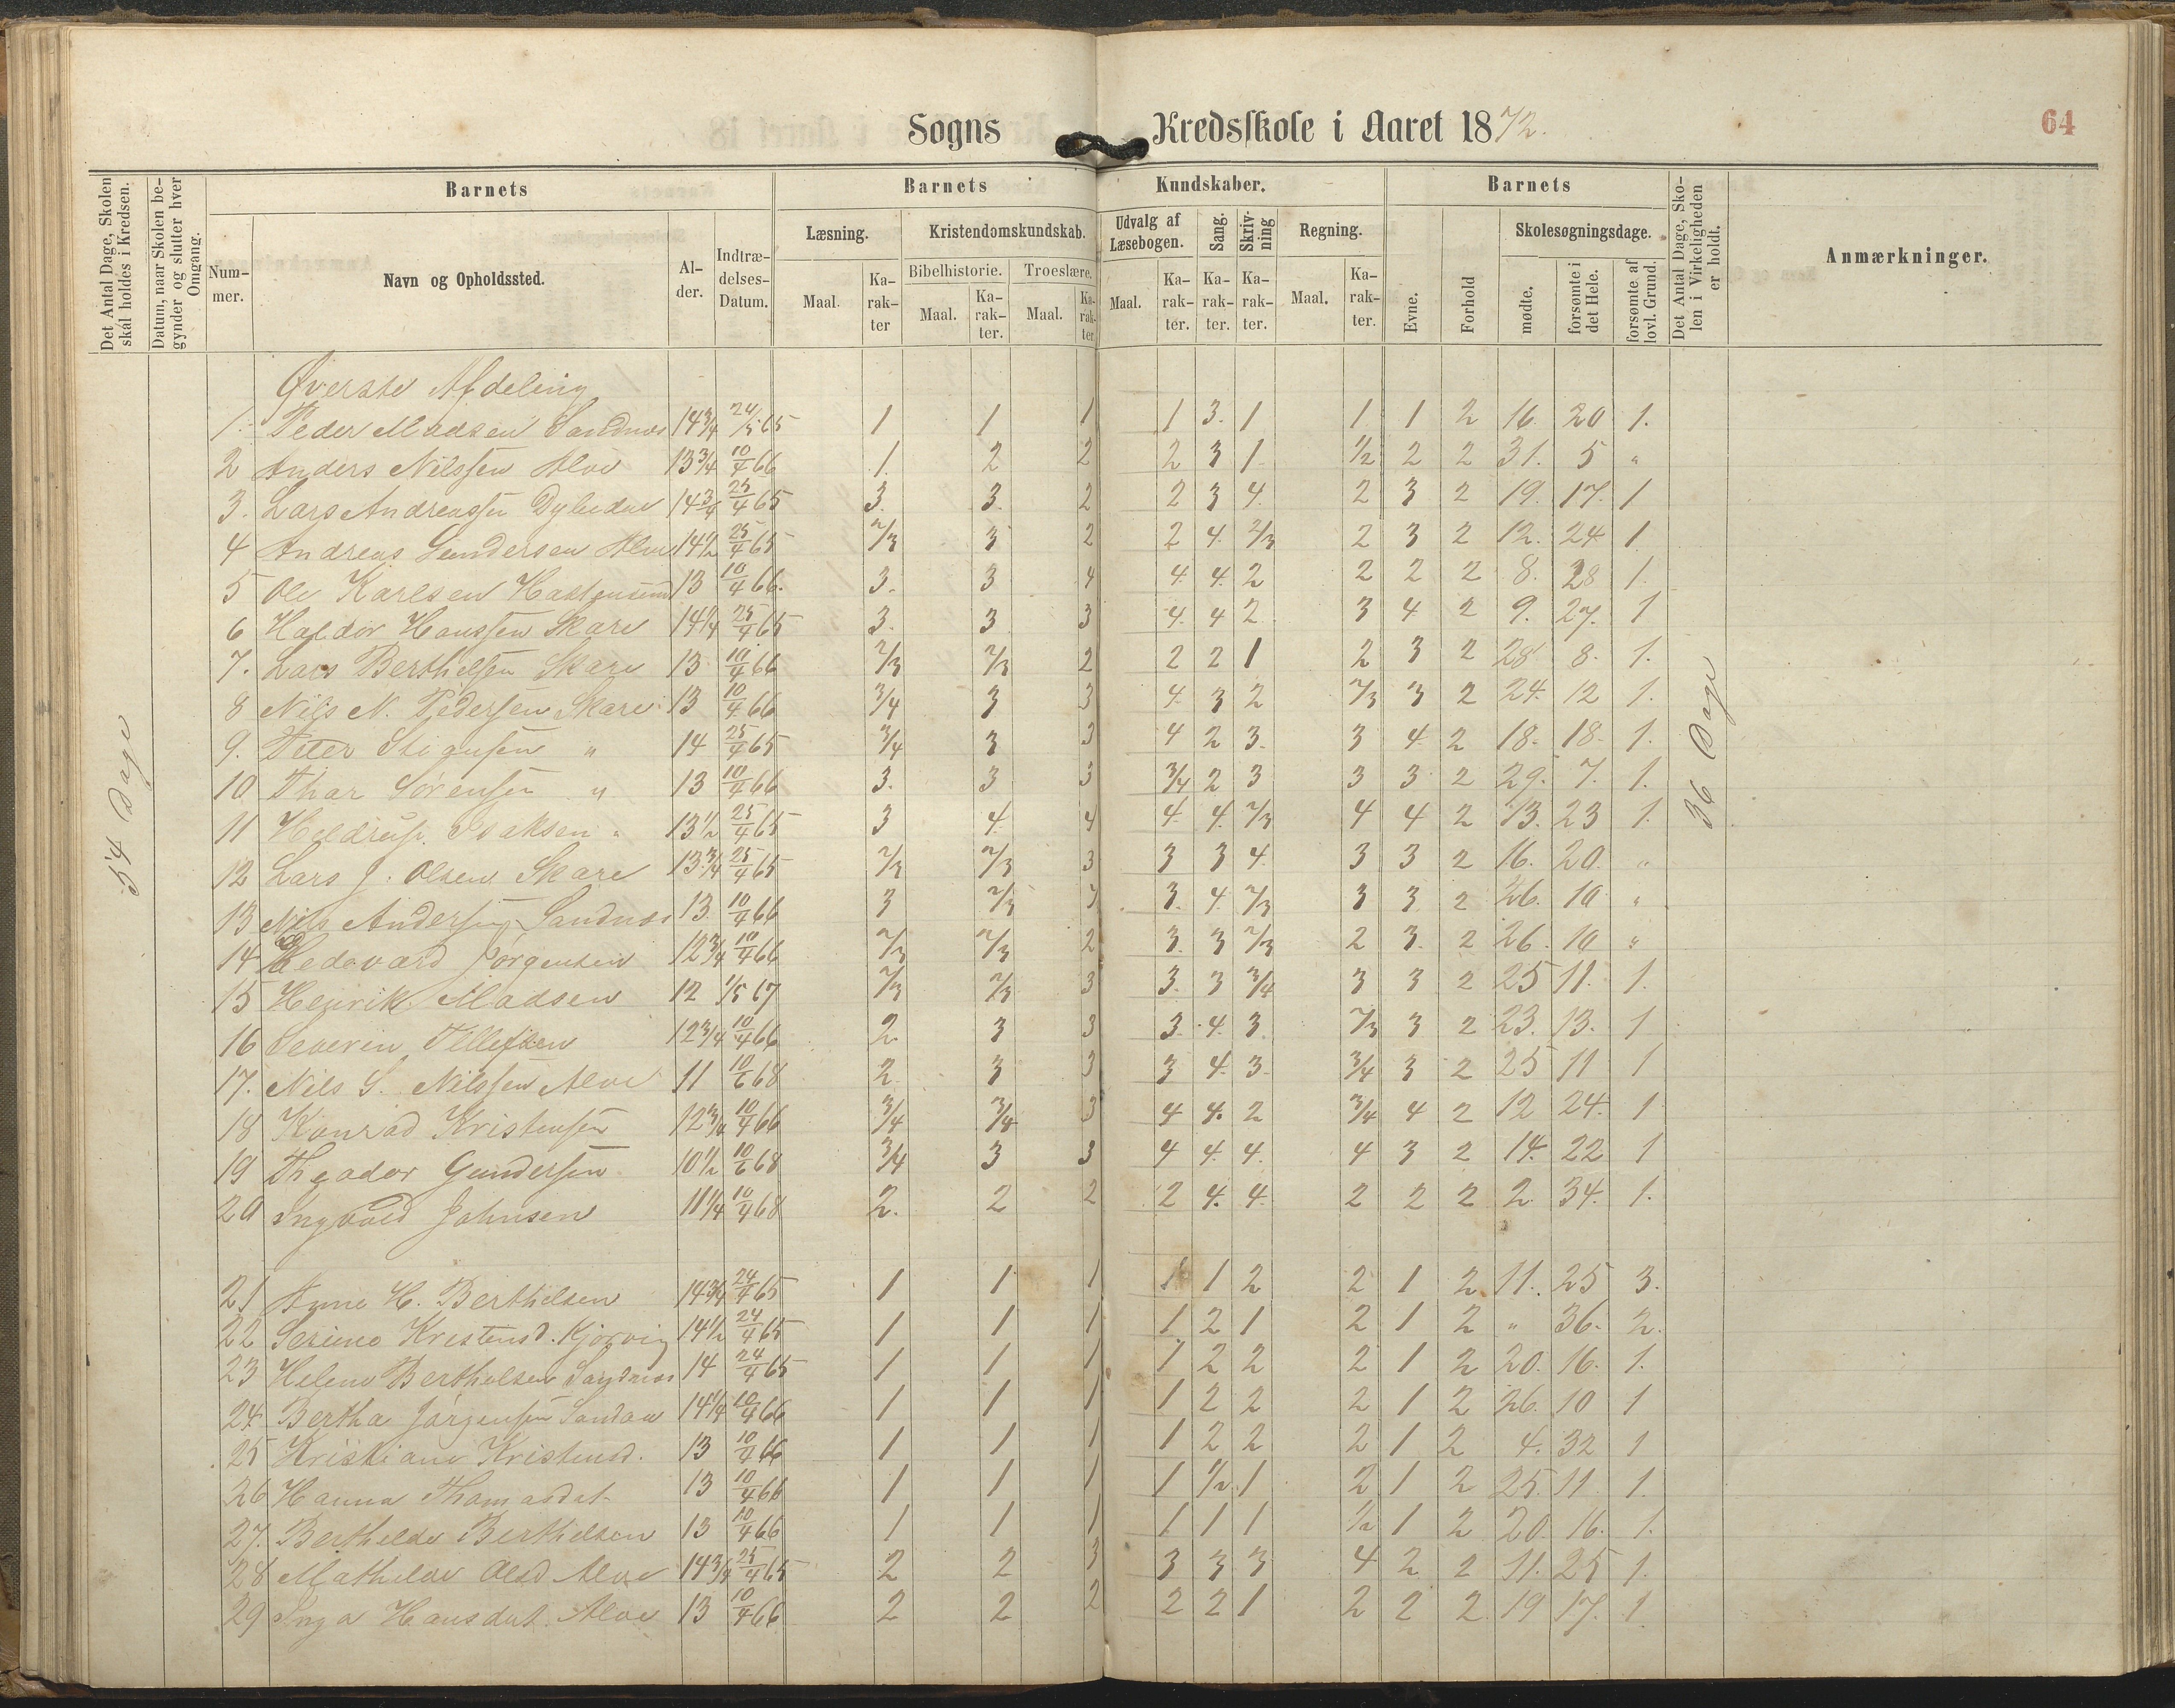 Sogns Kredsskole i Aaret 1872. 64
Det Antal Dage, Skolen skal holdes i Kredsen.
Datum, naar Skolen begynder og slutter hver Omgang.
Barnets Barnets Kundskaber. Barnets
Det Antal Dage, Skolen i Virkeligheden er holdt.
Anmærkninger.
Nummer. Navn og Opholdssted. Alder. Indtrædelses-Datum.
Læsning. Kristendomskundskab. Udvalg af Læsebogen. Sang. Skrivning Regning. Evne. Forhold Skolesøgningsdage.
Bibelhistorie. Troeslære.
Maal. Karakter Maal. Karakter. Maal. Karakter Maal. Karakter. Karakter. Karakter. Maal. Karakter. mødte. forsømte i det Hele. forsømte af lovl. Grund.
54 Dage
36 Dage
Øverste Afdeling
1. Peder Madsen Sandnæs 14 3/4 24/5 65 1 1 1 1 3. 1 1 1 2 16. 20 1.
2 Anders Nilssen Alve 13 3/4 10/4 66 1. 2 2 2 3 1 1/2 2 2 31. 5 "
3. Lars Andreassen 14 3/4 25/4 65 3. 3. 2 2 3 4. 2 3 2 19. 17. 1
4 Andreas Gundersen Alve 14 1/2 25/4 65 2/3 3 2 2 4. 2/3 2 3 2 12. 24 1
5 Ole Karlsen 13 10/4 66. 3. 3 4 4. 4. 2 2 2 2 8. 28 1.
6 Haldor Hanssen Skare 14 1/4 25/4 65 3. 3 3 4. 4 2 3 4 2 9. 27. 1
7. Lars Berthelsen Skare 13 10/4 66 2/3 2/3 2 2 2 1 2 3 2 28 8. 1.
8 Nils N. Pedersen Skare 13 10/4 66 3/4 3 3 4. 3 2 2/3 3 2 24. 12 1.
9. Peter " 14 25/4 65 3/4 3 3 4 2 3. 3 4. 2 18. 18. 1.
10 Thor Sørensen " 13 10/4 66 3. 3 3 3/4 2 3 3 3 2 29. 7. 1.
11 Isaksen " 13 1/2 25/4 65 3 4. 4 4. 4. 2/3 4 4 2 13. 23 1.
12 Lars J. Olsen Skare 13 3/4 25/4 65 2/3 2/3 3 3 3 4. 3 3 2 16. 20. "
13 Nils Andersen Sandnæs 13 10/4 66 3 2/3 3 3. 4. 2/3 3 3 2 26. 10 "
14 Jørgensen 12 3/4 10/4 66 2/3 2/3 2 3. 3 2/3 2 3. 2 26. 10 "
15 Henrik Madsen 12 1/5 67 2/3 2/3 3 3. 3 3/4 3 3 2 25 11. 1.
16 Severin Tellefsen 12 3/4 10/4 66 2. 3 3 3. 4. 3. 2/3 3 2 23. 13. 1
17. Nils S. Nilssen Alve 11 10/6 68 2. 3 3 3 4. 3. 3/4 3 2 25 11 1
18 Konrad Kristensen 12 3/4 10/4 66 3/4 3/4 3 4 4. 2 3/4 4 2 12 24. 1
19 Theodor Gundersen 10 1/2 10/6 68 3/4 3 3 4 4. 4. 4 3 2 14. 22 1
20 Ingvald Johnsen 11 1/4 10/4 68 2. 2 2 2 4. 4. 2 2 2 2 34. 1.
21 Anne H. Berthelsen 14 3/4 24/4 65 1 1 1 1 1 2 2 1 2 11. 25 3.
22 Serine Kristensd. Kjørvig 14 1/2 24/4 65 1 1 1 1 2 1 2 1 2 " 36. 2.
23 Helene Berthelsen Sandnæs 14 24/4 65 1 1 1 1 2 2 2 1 2 20. 16. 1.
24. Bertha Jørgensen 14 1/4 10/4 66 1 1 1 1 2 2 2 1 2 26. 10 1
25 Kristiane Kristensd. 13 10/4 66 1 1 1 1 2 2 2 1 2 4. 32 1
26 Hanna Thomasdat. 13 10/4 66 1 1 1 1 1/2 1 2 1 2 25. 11. 1.
27. Berthelde Berthelsen 13 10/4 66 1 1 1 1 1 1 1/2 1 2 20. 16. 1.
28 Mathilde Olsd Alve 14 3/4 25/4 65 2 2 3 3 3 3 4 2 2 11. 25 1.
29 Inga Hansdat. Alve 13 10/4 66 2 2 2 2 2 1 2 2 2 19 17. 1